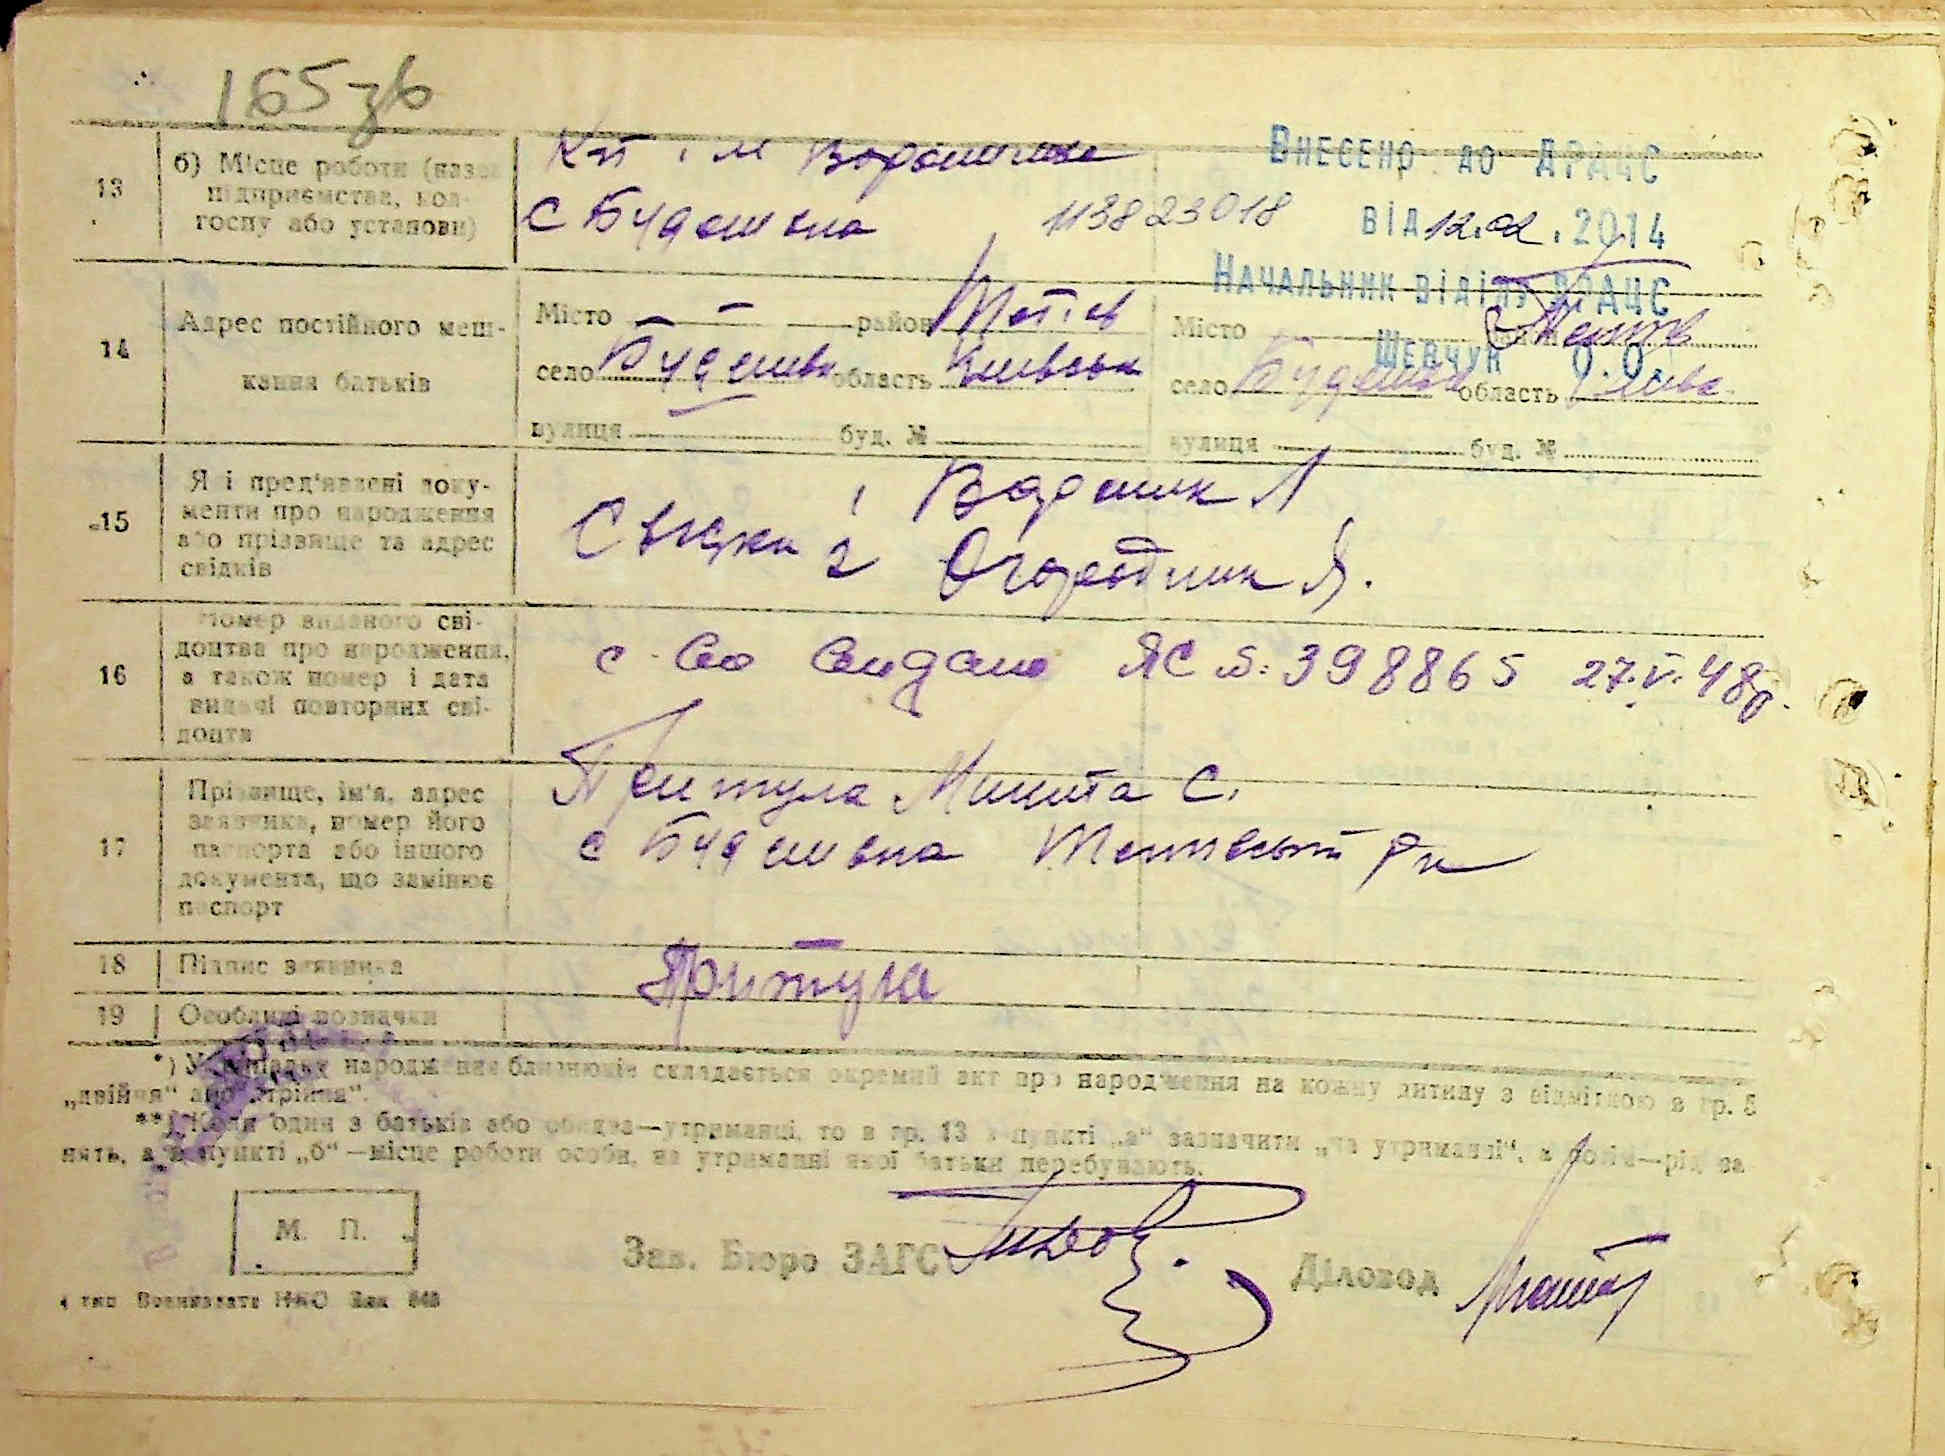 165 зв
13
б) Місце роботи (назва
підприємства, кол-
госпу або установи)
Кп ім Ворошилова
с Будошівка
113823018
Внесено до ДРАЦС
від 12.02.2014
Начальник відділу ДРАЦС
Шевчук О.О.
14
Адрес постійного меш-
кання батьків
Місто — район Тетіїв
село область Київськ
вулиця буд. №
Місто
село область
вулиця буд. №
15
Які пред'явлені доку-
менти про народження
або прізвище та адрес
свідків
Свідки 1
2 Огородник Я.
16
Номер виданого сві-
доцтва про народження,
а також номер і дата
видачі повторних сві-
доцтв
ЯС 398865 27.V.48р.
17
Прізвище, ім'я, адрес
заявника, номер його
паспорта або іншого
документа, що замінює
паспорт
Притула Микита С.
с рн
18
Підпис заявника
Притула
19
Особливі позначки
*) У випадку народження близнюків складається окремий акт про народження на кожну дитину з відміткою в гр. 5
„двійня“ або „трійня“.
**) Коли один з батьків або обидва—утриманці, то в гр. 13 в пункті „а“ зазначити „на утриманні“, а
нять, а в пункті „б“—місце роботи особи, на утриманні якої батьки перебувають.
М. П.
Зав. Бюро ЗАГС
Діловод